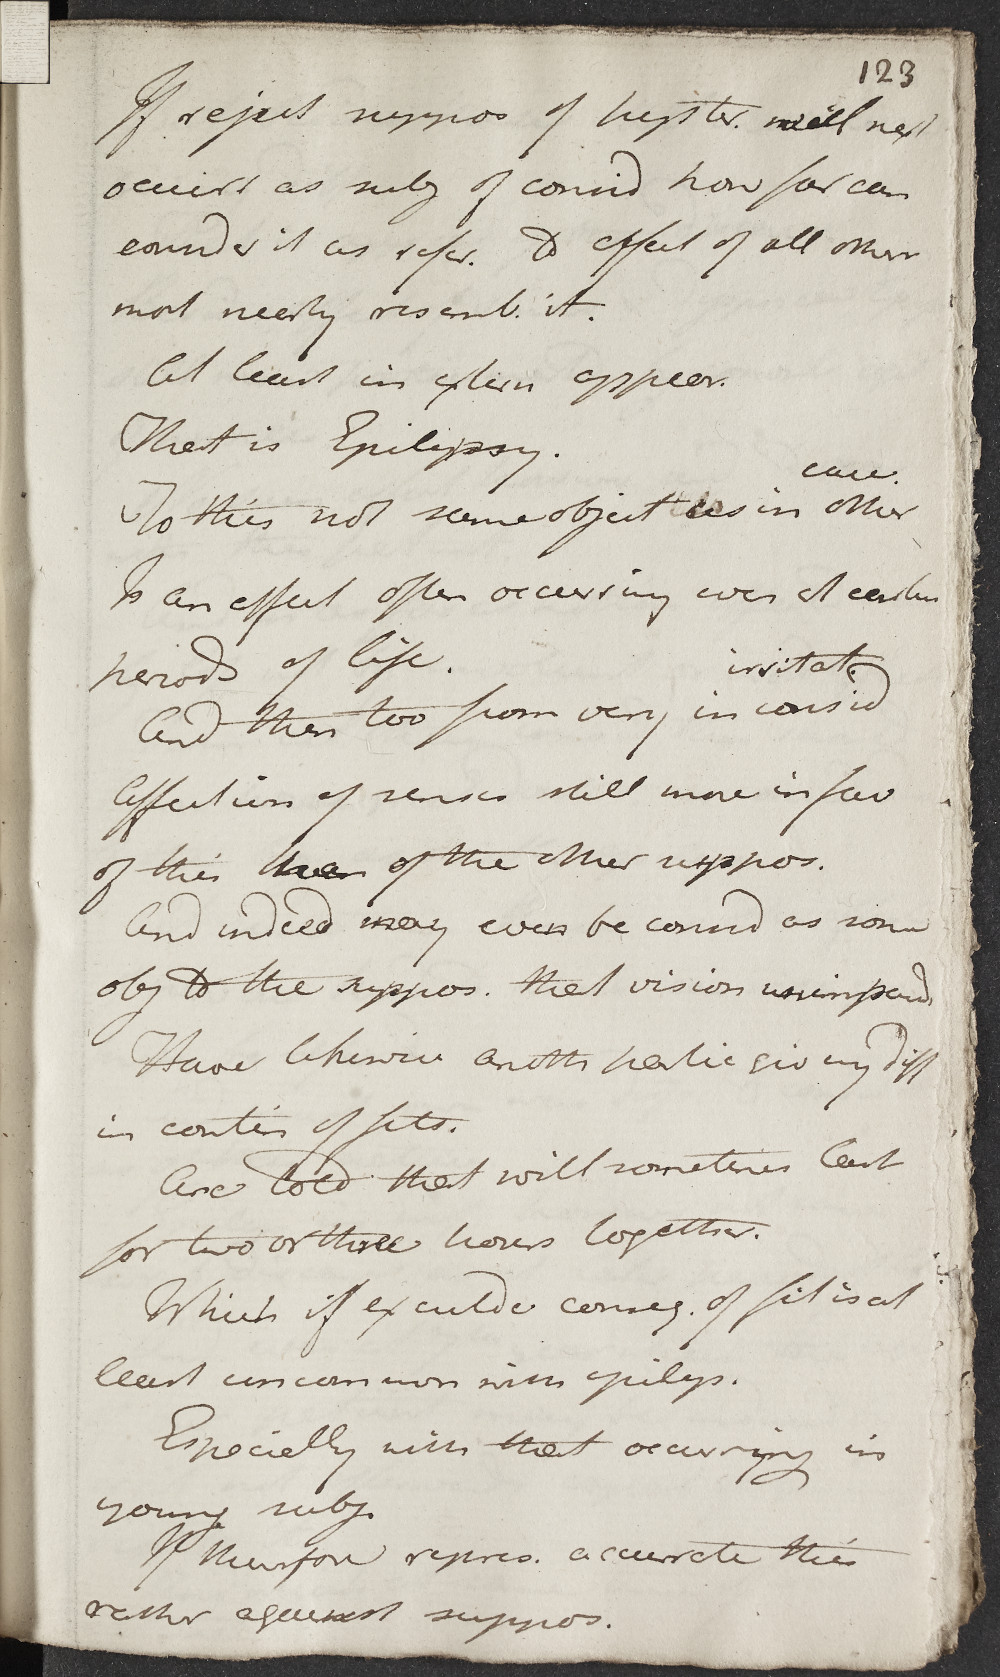 123
If reject suppos of hyster. will next
occurs as subj of consid how far can
consider it as refer. to effect of all others
most nearly resemb. it.
At least in extern appear.
That is Epilepsy.
case.
To this not same object as in other
Is an effect often occurring even at earlier
periods of life.
irritat.
And then too from very inconsid
Affection of senses still more in fav
of this than of the other suppos.
And indeed may even be consid as some
obj to the suppos. that vision unimpaird
Have likewise anoth partic giving diff
in contin of fits.
Are told that will sometimes last
for two or three hours together.
Which if exculde conseq. of fit is at
least uncommon with epileps.
Especially with that occurring in
young subj.
If therefore repres. accurate this
rather against suppos.